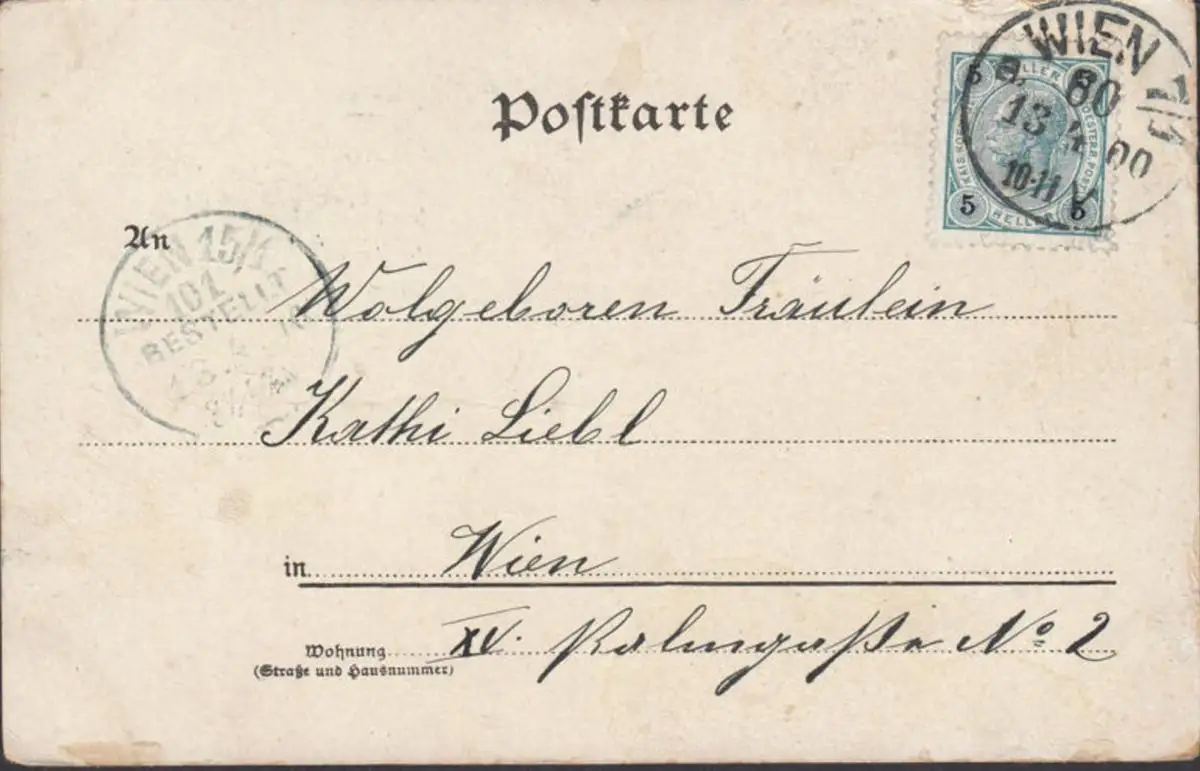 Postkarte
WIEN 7/1
a. 60
13 4 00
10-11 V
5 HELLER 5
KAIS. KOE OESTERR. POST
5 HELLER 5
An
WIEN 15/1
101
BESTELLT
Wolgeboren Fräulein
Kathi Liebl
in Wien
Wohnung XV. Palmgaße No 2
(Straße und Hausnummer)